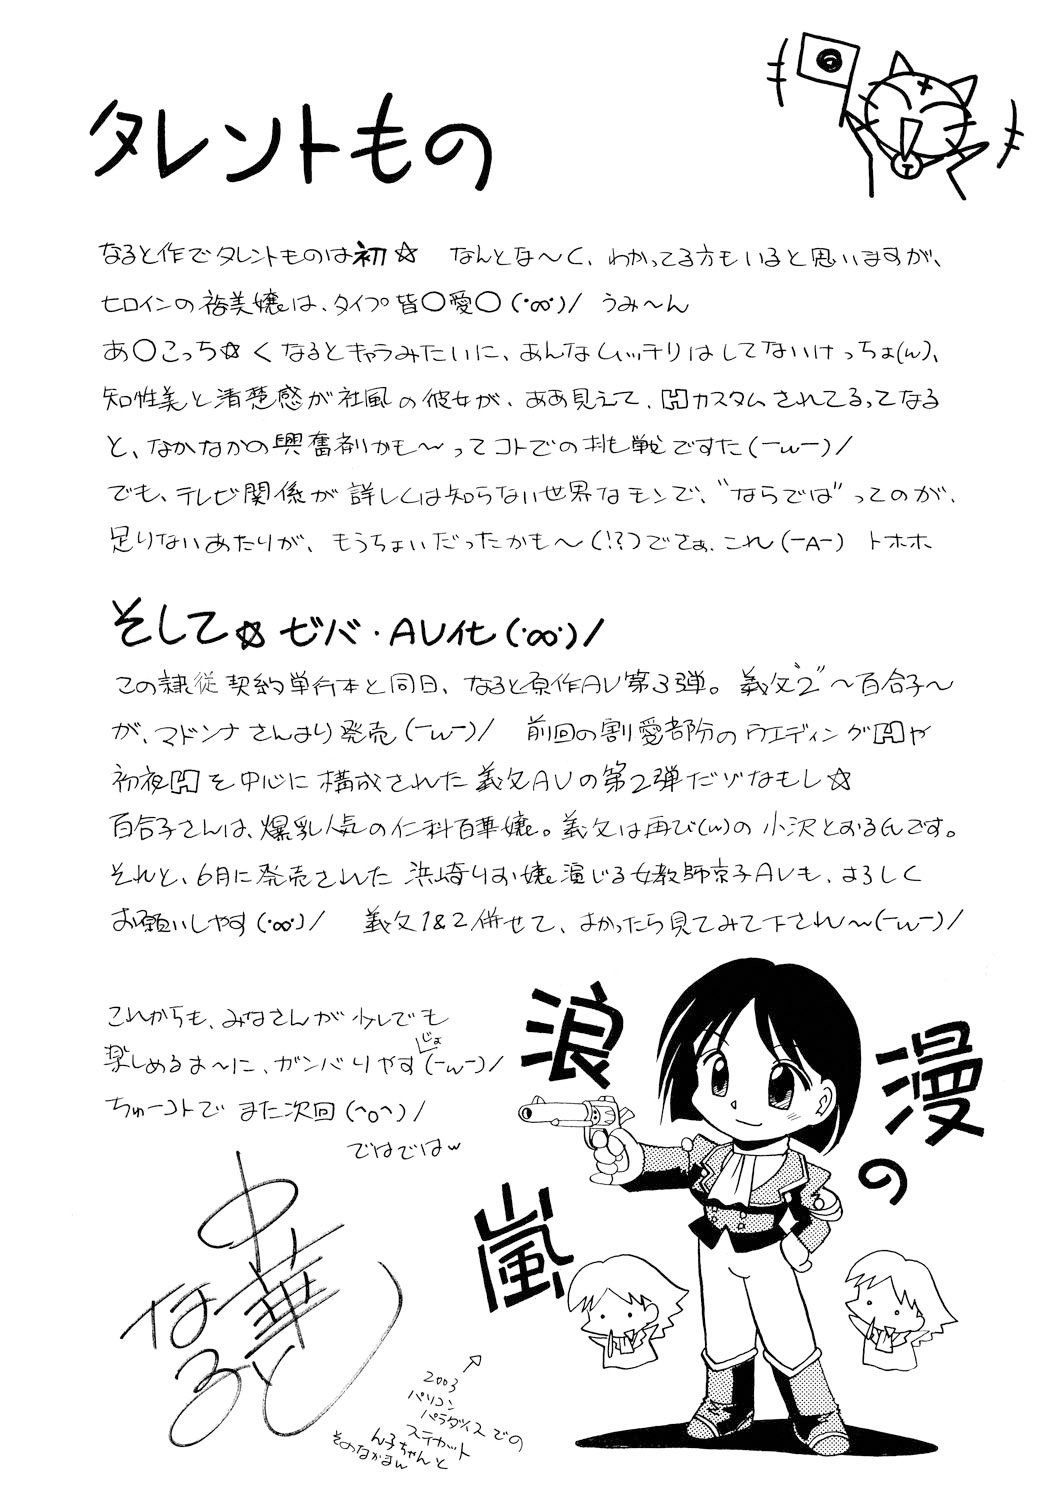 タレントもの
なると作でタレントものは初☆ なんとな〜く、わかってる方もいると思いますが、
ヒロインの裕美嬢は、タイプ皆〇愛〇(・∞・)/ うみ〜ん
あ〇こっち☆くなるとキャラみたいに、あんなムッチリはしてないけっちょ(ん)、
知性美と清楚感が社風の彼女が、ああ見えて、Hカスタムされてるってなる
と、なかなかの興奮剤かも〜ってコトでの挑戦ですた(ーwー)/
でも、テレビ関係が詳しくは知らない世界なモンで、"ならでは"ってのが、
足りないあたりが、もうちょいだったかも〜(!?)でさぁ、これ(ーAー) トホホ
そして☆ ビバ・AV化(・∞・)/
この隷従契約単行本と同日、なると原作AV第3弾。義父"2"〜百合子〜
が、マドンナさんより発売(ーwー)/ 前回の割愛部分のウエディングHや
初夜Hを中心に構成された義父AVの第2弾だゾなもし☆
百合子さんは、爆乳人気の仁科百華嬢。義父は再び(w)の小沢とおるんです。
それと、6月に発売された浜崎りお嬢演じる女教師京子AVも、よろしく
お願いしやす(・∞・)/ 義父1&2併せて、よかったら見てみて下され〜(ーwー)/
これからも、みなさんが少しでも
楽しめるよ〜に、ガンバりやす(ーwー)/
じょ
ちゅーコトで また次回(^o^)/
ではではw
中華
なると
浪漫の
嵐
2003
パソコン
パラダイスでの
ステカット
ん子ちゃんと
そのなかまw